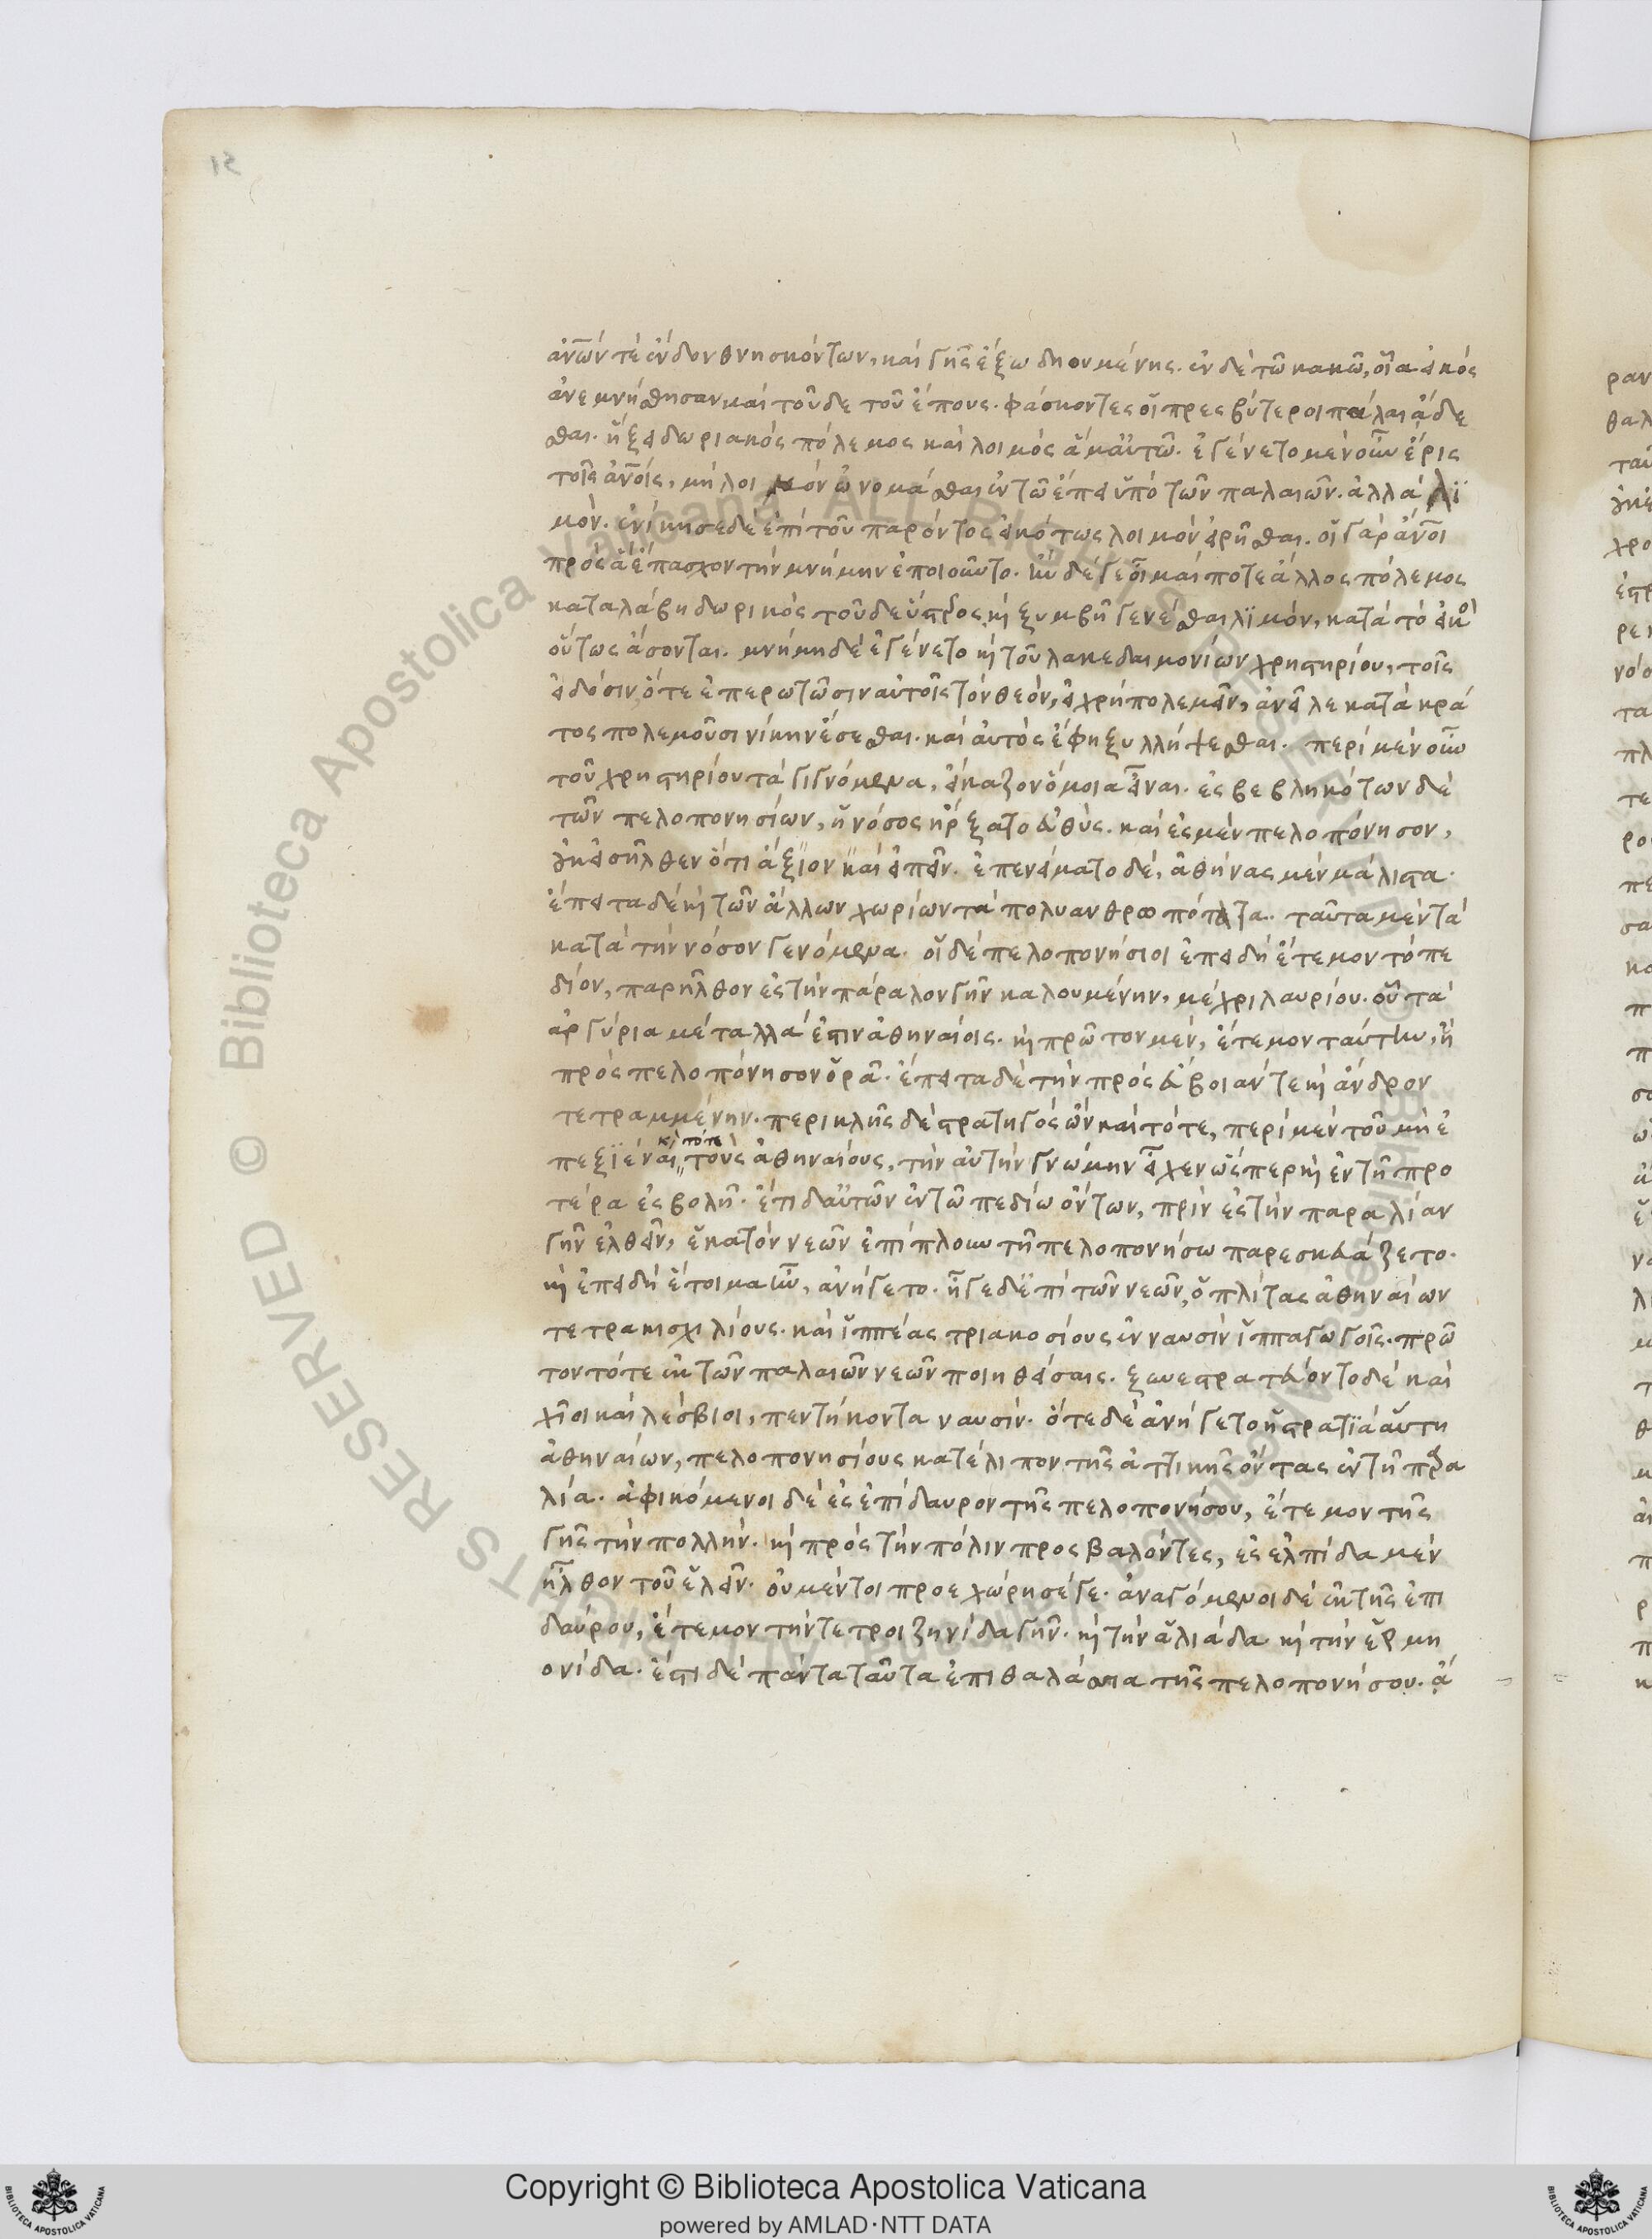 51
ἀνῶν τὲ ἔνδον θνησκόντων, καὶ γῆς ἔξω δηουμένης. ἐν δὲ τῶ κακῶ, οἷα εἰκὸς
ἀνεμνήσθησαν καὶ τοῦδε τοῦ ἔπους. φάσκοντες οἱ πρεσβύτεροι πάλαι ἄδε
σθαι. ἥξει δωριακὸς πόλεμος καὶ λοιμὸς ἅμ' αὐτῶ. ἐγένετο μὲν οὖν ἔρις
τοῖς ἀνοῖς, μὴ λοιμὸν ὠνομάσθαι ἐν τῶ ἔπει ὑπὸ τῶν παλαιῶν. ἀλλὰ λϊ
μόν. ἐνίκησε δὲ ἐπὶ τοῦ παρόντος εἰκότως λοιμὸν εἰρῆσθαι. οἱ γὰρ ἄνοι
πρὸς ἃ ἔπασχον τὴν μνήμην ἐποιοῦντο. ἢν δέ γε οἶμαί ποτε ἄλλος πόλεμος
καταλάβη δωρικὸς τοῦδε ὕστερος κ ξυμβῆ γενέσθαι λϊμόν, κατὰ τὸ εἰκὸ
οὕτως ἄσονται. μνήμη δὲ ἐγένετο κ τοῦ λακεδαιμονίων χρηστηρίου, τοῖς
εἰδόσιν, ὅτε ἐπερωτῶσιν αὐτοῖς τὸν θεόν, εἰ χρὴ πολεμεῖν, ἀνεῖλε κατὰ κρά
τος πολεμοῦσι νίκην ἔσεσθαι. καὶ αὐτὸς ἔφη ξυλλήψεσθαι. περὶ μὲν οὖν
τοῦ χρηστηρίου τὰ γιγνόμενα, εἴκαζον ὅμοια εἶναι. ἐσβεβληκότων δὲ
τῶν πελοπονησίων, ἡ νόσος ἤρξατο εὐθύς. καὶ ἐς μὲν πελοπόνησον,
οὐκ ἐσῆλθεν ὅτι ἄξιον καὶ εἰπεῖν. ἐπενείματο δέ, ἀθήνας μὲν μάλιστα.
ἔπειτα δὲ κ τῶν ἄλλων χωρίων τὰ πολυανθρωπότατα. ταῦτα μὲν τὰ
κατὰ τὴν νόσον γενόμενα. οἱ δὲ πελοπονήσιοι ἐπειδὴ ἔτεμον τὸ πε
δίον, παρῆλθον ἐς τὴν πάραλον γῆν καλουμένην, μέχρι λαυρίου. οὗ τὰ
ἀργύρια μέταλλά ἐστιν ἀθηναίοις. κ πρῶτον μὲν, ἔτεμον ταύτην, ἣ
πρὸς πελοπόνησον ὁρᾶ. ἔπειτα δὲ τὴν πρὸς εὔβοιάν τε κ ἄνδρον
τετραμμένην. περικλῆς δὲ στρατηγὸς ὢν καὶ τότε, περὶ μὲν τοῦ μὴ ἐ
κ τότε
πεξϊέναι τοὺς ἀθηναίους, τὴν αὐτὴν γνώμην εἶχεν ὥσπερ κ ἐν τῆ προ
τέρα ἐσβολῆ. ἔτι δ' αὐτῶν ἐν τῶ πεδίω ὄντων, πρὶν ἐς τὴν παραλίαν
γῆν ἐλθεῖν, ἑκατὸν νεῶν ἐπίπλουν τῆ πελοπονήσω παρεσκευάζετο.
κ ἐπειδὴ ἕτοιμα ἦν, ἀνήγετο. ἦγε δ' ἐπὶ τῶν νεῶν, ὁπλίτας ἀθηναίων
τετρακισχιλίους. καὶ ἱππέας τριακοσίους ἐν ναυσὶν ἱππαγωγοῖς. πρῶ
τον τότε ἐκ τῶν παλαιῶν νεῶν ποιηθείσαις. ξυνεστρατεύοντο δὲ καὶ
χῖοι καὶ λέσβιοι, πεντήκοντα ναυσίν. ὅτε δὲ ἀνήγετο ἡ στρατϊὰ αὕτη
ἀθηναίων, πελοπονησίους κατέλιπον τῆς ἀττικῆς ὄντας ἐν τῆ παρα
λία. ἀφικόμενοι δὲ ἐς ἐπίδαυρον τῆς πελοπονήσου, ἔτεμον τῆς
γῆς τὴν πολλήν. κ πρὸς τὴν πόλιν προσβαλόντες, ἐς ἐλπίδα μὲν
ἦλθον τοῦ ἑλεῖν. οὐ μέντοι προεχώρησέ γε. ἀναγόμενοι δὲ ἐκ τῆς ἐπι
δαύρου, ἔτεμον τήν τε τροιζηνίδα γῆν. κ τὴν ἁλιάδα κ τὴν ἑρμη
ονίδα. ἔστι δὲ πάντα ταῦτα ἐπιθαλάσσια τῆς πελοπονήσου. ἄ
© Biblioteca Apostolica Vaticana ALL RIGHTS RESERVED
Copyright © Biblioteca Apostolica Vaticana
powered by AMLAD·NTT DATA
BIBLIOTECA APOSTOLICA VATICANA
BIBLIOTECA APOSTOLICA VATICANA